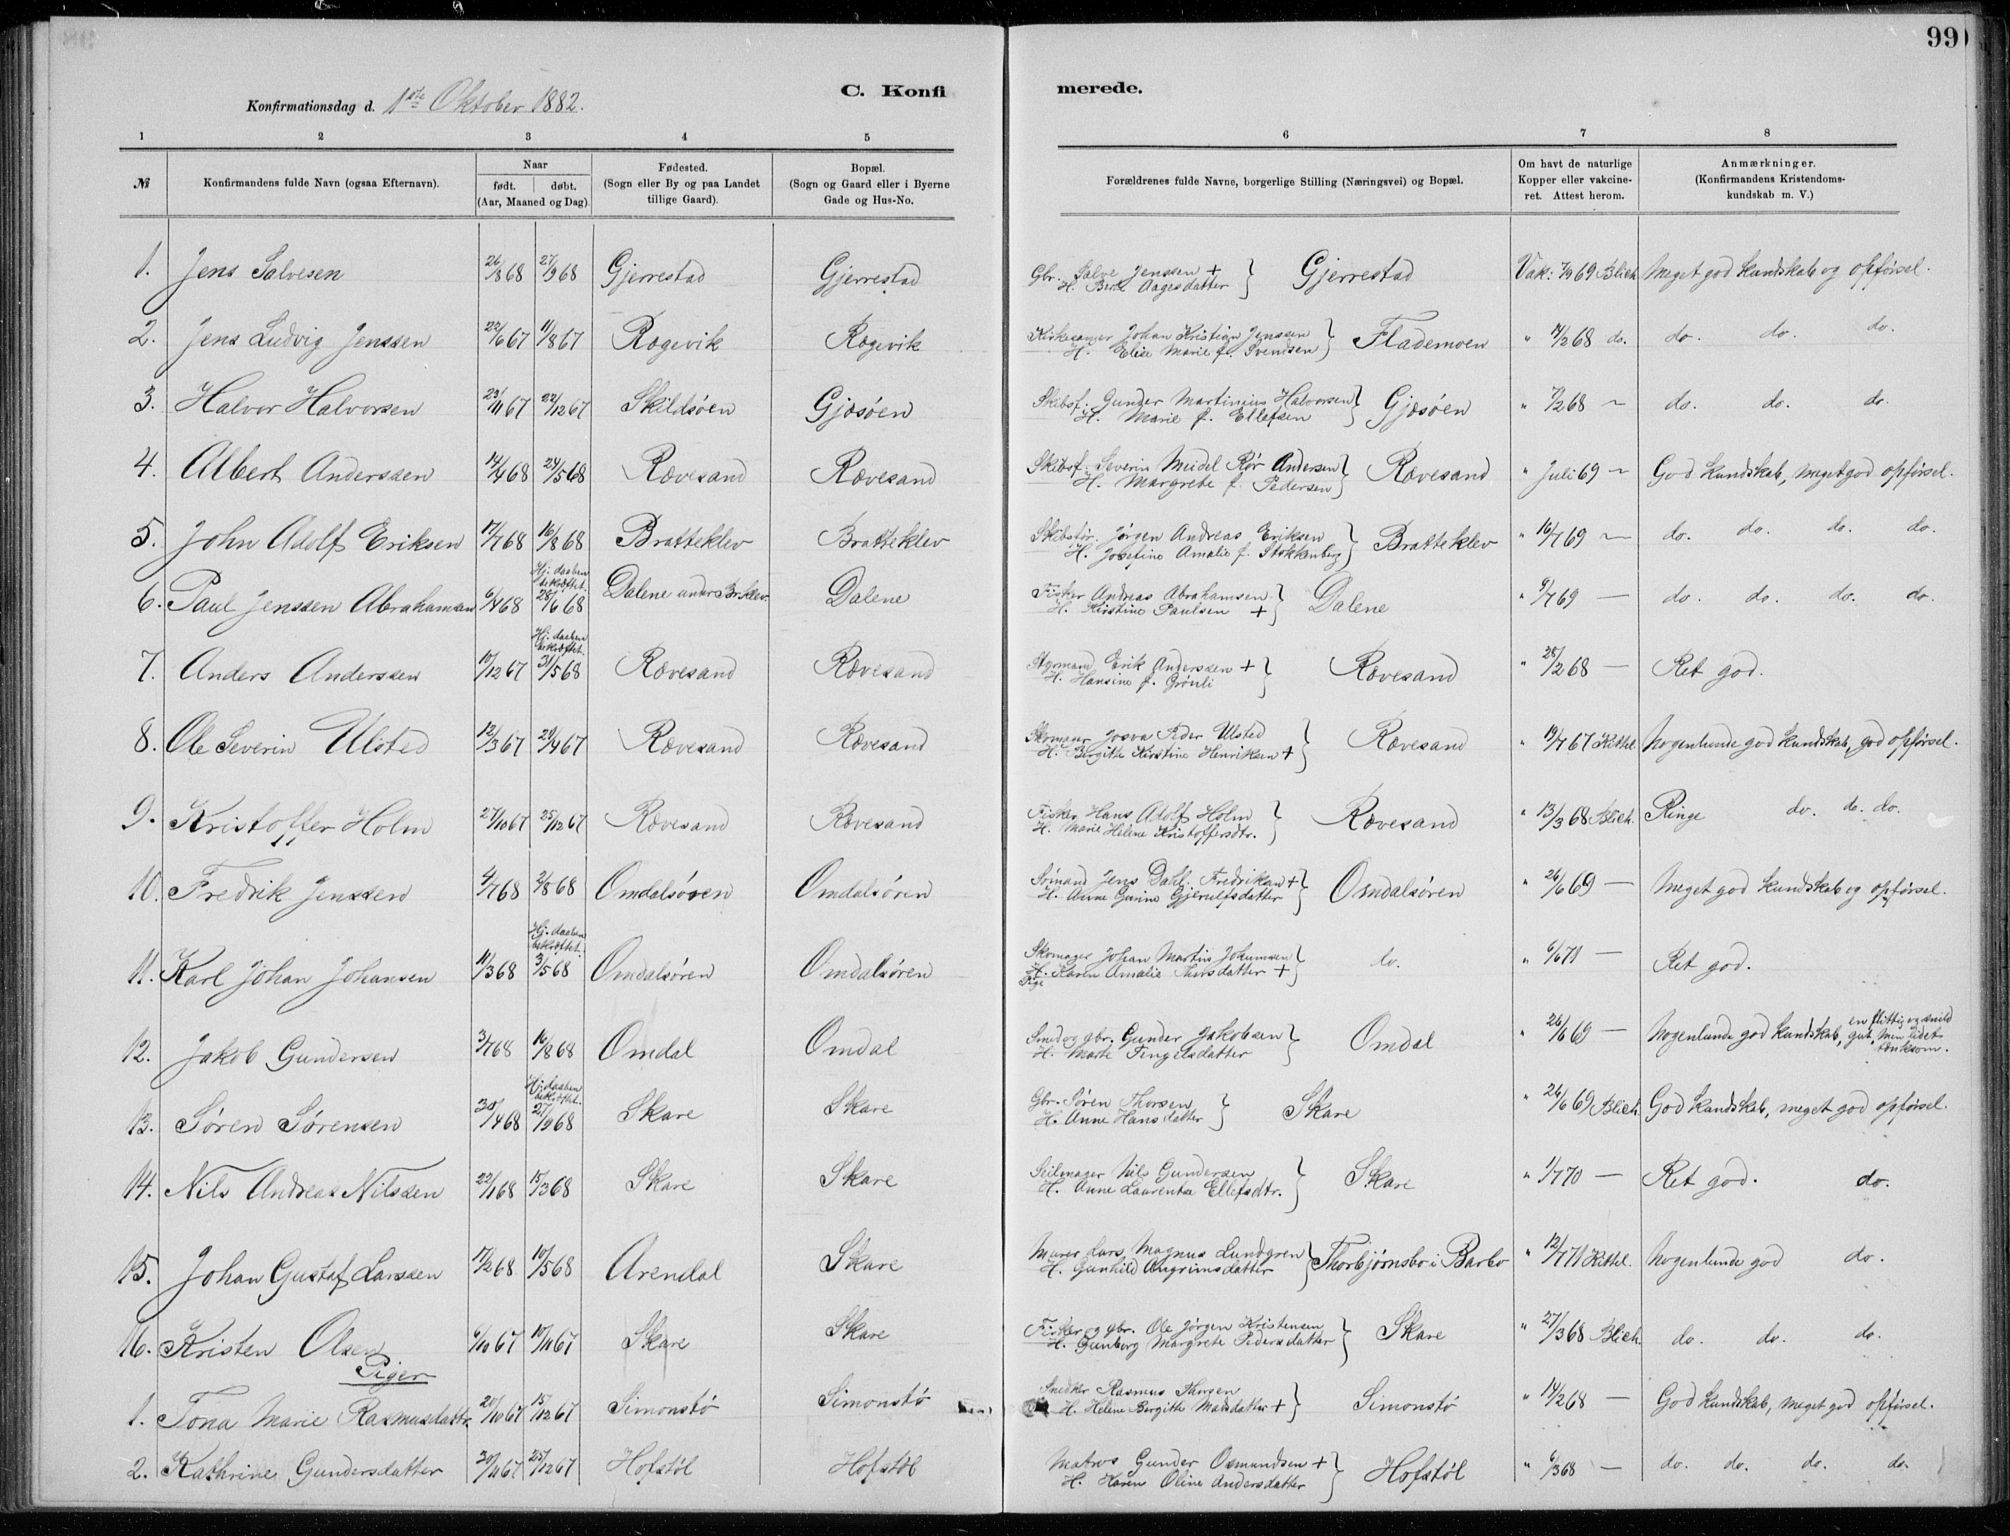 99
Konfirmationsdag d. 1ste Oktober 1882.
C. Konfirmerede.
1 2 3 4 5 6 7 8
№
Konfirmandens fulde Navn (ogsaa Efternavn).
Naar
født. døbt.
(Aar, Maaned og Dag).
Fødested.
(Sogn eller By og paa Landet
tillige Gaard).
Bopæl.
(Sogn og Gaard eller i Byerne
Gade og Hus-No.
Forældrenes fulde Navne, borgerlige Stilling (Næringsvei) og Bopæl.
Om havt de naturlige
Kopper eller vakcine-
ret. Attest herom.
Anmærkninger.
(Konfirmandens Kristendoms-
kundskab m. V.)
1. Jens Salvesen 26/8 68 27/9 68 Gjerrestad Gjerrestad Gbr. Salve Jenssen + Gjerrestad Vak: 7/9 69 Blich Meget god kundskab og opførsel.
H. Berte Aagesdatter
2. Jens Ludvig Jenssen 22/6 67 11/8 67 Rægevik Rægevik Kirkesanger Johan Kristian Jenssen Flademoen " 14/2 68 do. do. do. do.
H. Elise Marie f. Svendsen
3. Halvor Halvorsen 23/11 67 22/12 67 Skildsøen Gjæsøen Skibsf. Gunder Martinius Halvorsen Gjæsøen " 7/2 68 ~ do. do. do.
H. Marie f. Ellefsen
4. Albert Anderssen 14/4 68 24/5 68 Rævesand Rævesand Skibsf. Severin Meidel Rør Andersen Rævesand " Juli 69 ~ God kundskab, meget god opførsel.
H. Margrete f. Pedersen
5. John Adolf Eriksen 17/7 68 16/8 68 Bratteklev Bratteklev Skibstør. Jørgen Andreas Eriksen Bratteklev " 16/7 69 ~ do. do. do. do.
H. Josefine Amalie f. Stokkenberg
Hj. daaben
bekræftet.
6. Paul Jenssen Abrahamsen 6/4 68 28/6 68 Dalene under Br.klev. Dalene Fisker Andreas Abrahamsen Dalene " 9/7 69 — do. do. do. do.
H. Kirstine Paulsen +
Hj. daaben
bekræftet.
7. Anders Anderssen 10/12 67 31/5 68 Rævesand Rævesand Styrmand Erik Anderssen + Rævesand " 28/2 68 — Ret god.
H. Hansine f. Grønli
8. Ole Severin Ulsted 12/3 67 29/4 67 Rævesand Rævesand Skomager Josva Peder Ulsted Rævesand " 19/7 67 Kittel. Nogenlunde god kundskab, god opførsel.
H. Birgitte Kirstine Henriksen +
9. Kristoffer Holm 27/10 67 25/12 67 Rævesand Rævesand Fisker Hans Adolf Holm Rævesand " 13/3 68 Blich. Ringe do. do. do.
H. Marie Helene Kristoffersdtr.
10. Fredrik Jenssen 4/7 68 2/8 68 Omdalsøren Omdalsøren Sømand Jens Dahl Fredriksen + Omdalsøren " 26/6 69 — Meget god kundskab og opførsel.
H. Anne Gurine Gjerulfsdatter
Hj. daaben
bekræftet.
11. Karl Johan Johansen 11/3 68 3/5 68 Omdalsøren Omdalsøren Skomager Johan Martin Johannsen do. " 6/6 71 — Ret god.
H. Karen Amalie Thorsdatter +
Pige
12. Jakob Gundersen 3/7 68 16/8 68 Omdal Omdal Smed og gbr. Gunder Jakobsen Omdal " 26/6 69 — Nogenlunde god kundskab, en flittig og snild
H. Marte Tingelsdatter gut, men lidet
tænksom.
Hj. daaben
bekræftet.
13. Søren Sørensen 30/4 68 27/9 68 Skare Skare Gbr. Søren Thorsen Skare " 26/6 69 Blich. God kundskab, meget god opførsel.
H. Anne Hansdatter
14. Nils Andreas Nilssen 22/1 68 15/3 68 Skare Skare Seilmager Nils Gundersen Skare " 1/7 70 — Ret god. do.
H. Anne Laurentse Ellefsdtr.
15. Johan Gustaf Larssen 17/2 68 10/5 68 Arendal Skare Murer Lars Magnus Lundgren Thorbjørnsbo i Barbo " 12/7 71 Kittel. Nogenlunde god do.
H. Gunhild Angrimsdatter
16. Kristen Olsen 6/10 67 10/11 67 Skare Skare Fisker og gbr. Ole Jørgen Kristensen Skare " 27/3 68 Blich. do. do. do.
H. Gunborg Margrete Pedersdatter
Piger
1. Tona Marie Rasmusdattr. 20/10 67 15/12 67 Simonstø Simonstø Snedker Rasmus Thorsen Simonstø " 14/2 68 — God kundskab, meget god opførsel.
H. Helene Birgitte Madsdatter +
2. Kathrine Gundersdatter 20/11 67 25/12 67 Hofstøl Hofstøl Matros Gunder Osmundsen + Hofstøl " 6/3 68 — do. do. do. do.
H. Karen Oline Andersdatter